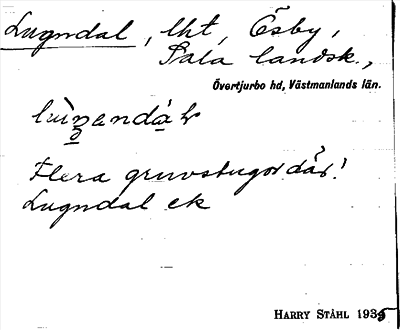 Lugndal, lht, Ösby,
Sala landsk.,
Övertjurbo hd, Västmanlands län.
Flera gruvstugor där!
Lugndal ek
HARRY STÅHL 1935